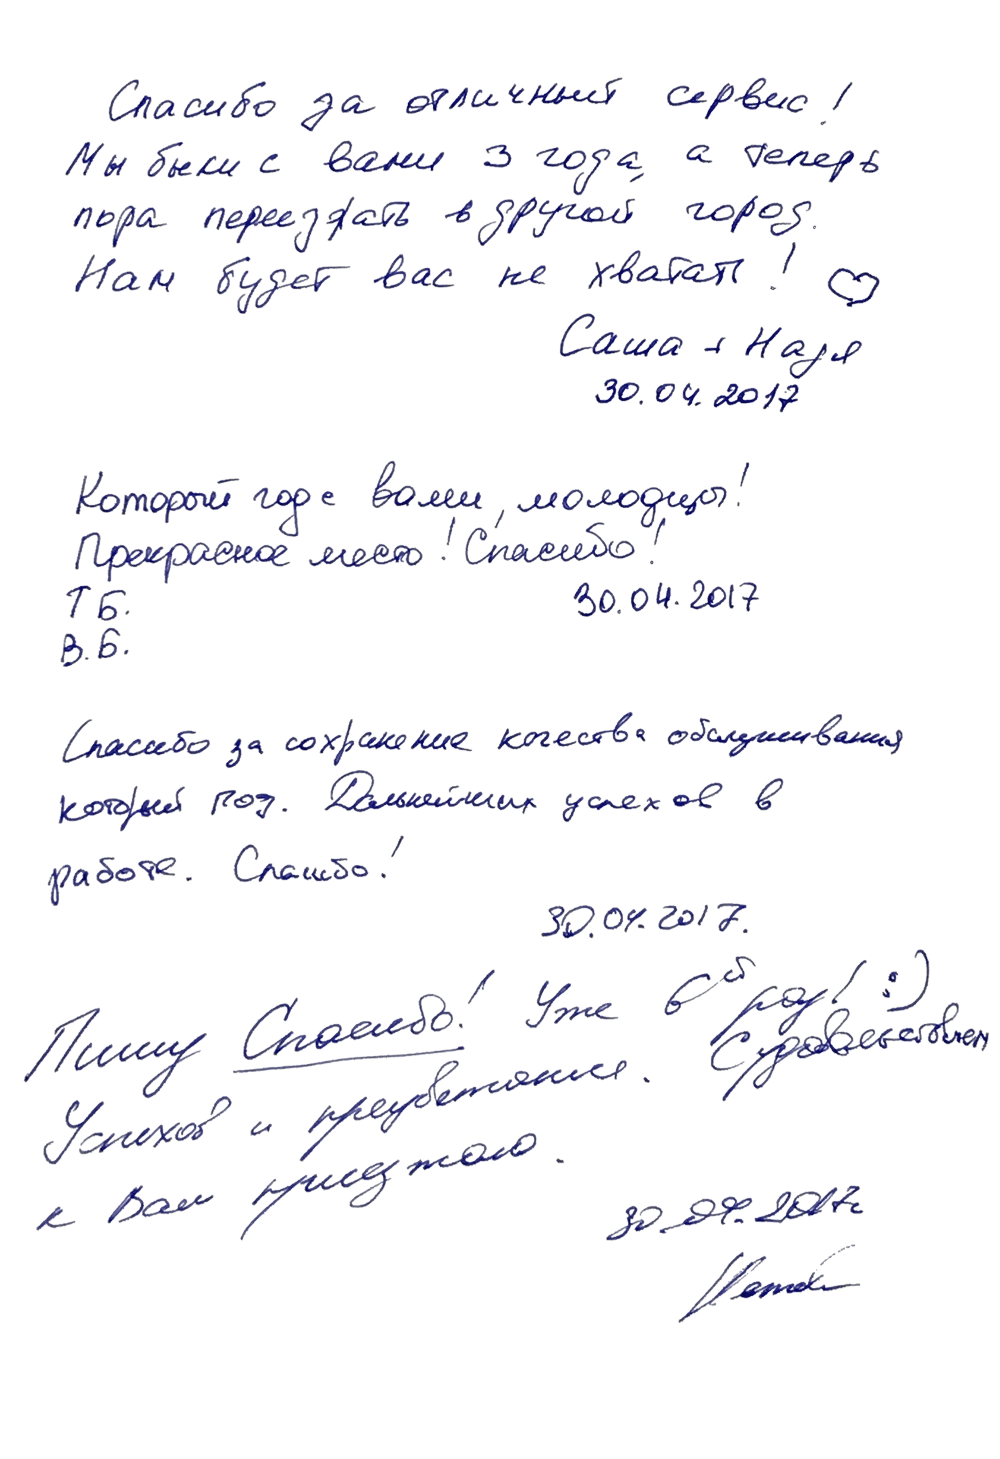 Спасибо за отличный сервис!
Мы были с вами 3 года, а теперь
пора переезжать в другой город.
Нам будет вас не хватать!
Саша + Надя
30.04.2017
Который год с вами, молодцы!
Прекрасное место! Спасибо!
Т Б.
В. Б.
30.04.2017
Спасибо за сохранение качества обслуживания
который год. Дальнейших успехов в
работе. Спасибо!
30.04.2017.
Пишу Спасибо! Уже 6й год! :)
Успехов и процветания. С удовольствием
к Вам приезжаю.
30.04.2017г